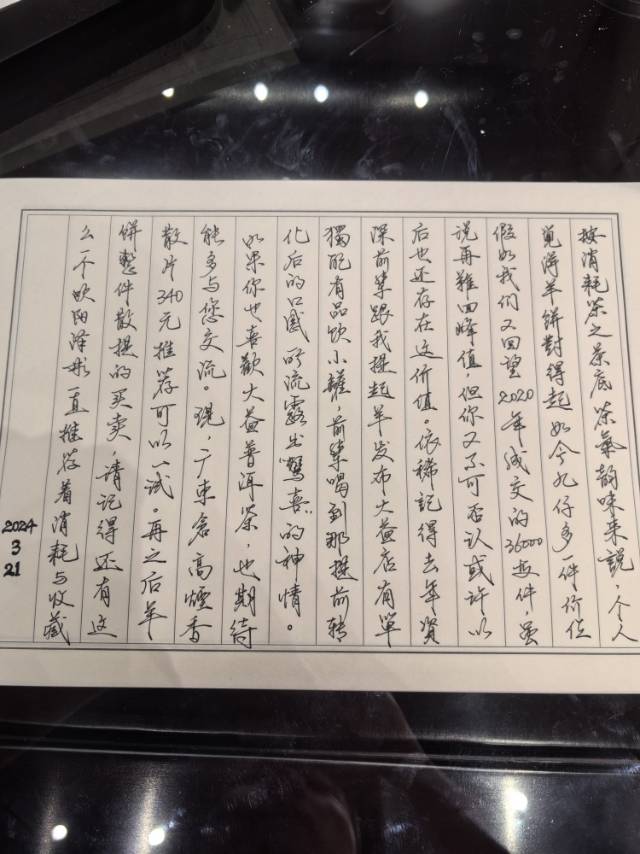 按消耗茶之茶底茶氣韵味来說，个人
覓得羊餅對得起如今九仔多一件价位
假如我们又回望2020年成交的36000每件，虽
说再難回峰值，但你又不可否认或许以
后也还存在这价值。依稀記得去年資
深前輩跟我提起羊发布大益店有單
獨配有品饮小罐，前輩喝到那提前转
化后的口感所流露出"驚喜"的神情。
如果你也喜歡大益普洱茶，也期待
能多与您交流。現，广東倉高煙香
散片340元推荐可以一试。再之后羊
餅整件散提的买卖，请记得还有这
么一个欧阳泽彬一直推荐着消耗与收藏
2024
3
21